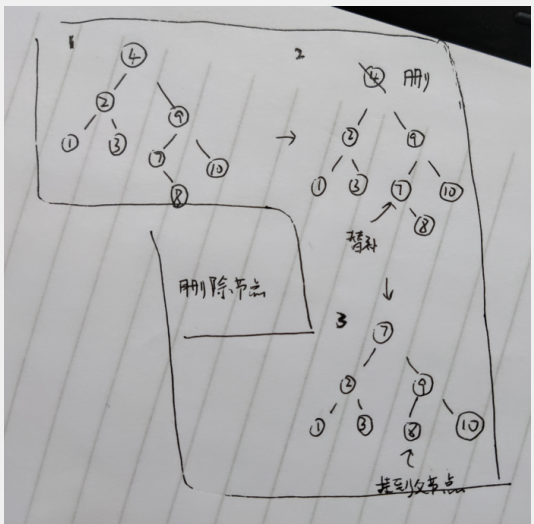 1
④
② ⑨
① ③ ⑦ ⑩
⑧
→
2
④ 删
② ⑨
① ③ ⑦ ⑩
⑧
替补
↓
删除节点
3
⑦
② ⑨
① ③ ⑧ ⑩
挂到父节点